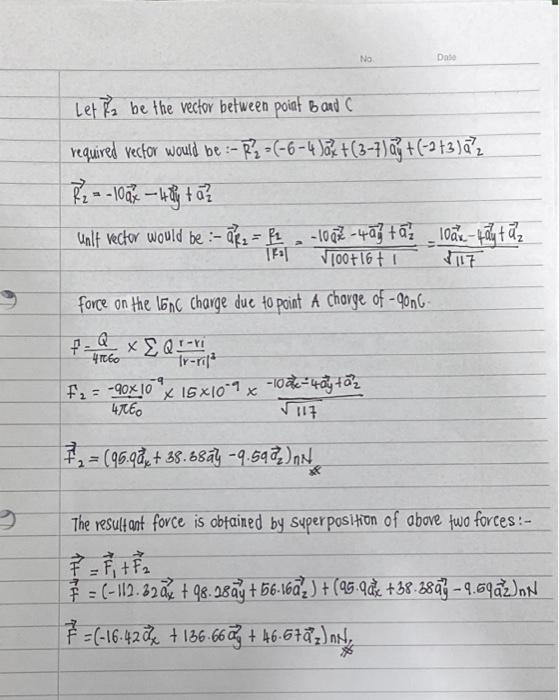 No. Date
Let R⃗₂ be the vector between point B and C
required vector would be :- R⃗₂ = (-6-4)a⃗x + (3-7)a⃗y + (-2+3)a⃗z
R⃗₂ = -10a⃗x - 4a⃗y + a⃗z
Unit vector would be :- a⃗R₂ = R₂/|R₂| = (-10a⃗x - 4a⃗y + a⃗z)/√(100+16+1) = (10a⃗x - 4a⃗y + a⃗z)/√117
Force on the 15nC charge due to point A charge of -90nC.
F = Q/4πε₀ × Σ Q (r-ri)/|r-ri|³
F₂ = (-90×10⁻⁹)/4πε₀ × 15×10⁻⁹ × (-10a⃗x - 4a⃗y + a⃗z)/√117
F⃗₂ = (95.9a⃗x + 38.38a⃗y - 9.59a⃗z)nN
The resultant force is obtained by superposition of above two forces:-
F⃗ = F⃗₁ + F⃗₂
F⃗ = (-112.32a⃗x + 98.28a⃗y + 56.16a⃗z) + (95.9a⃗x + 38.38a⃗y - 9.59a⃗z)nN
F⃗ = (-16.42a⃗x + 136.66a⃗y + 46.57a⃗z)nN